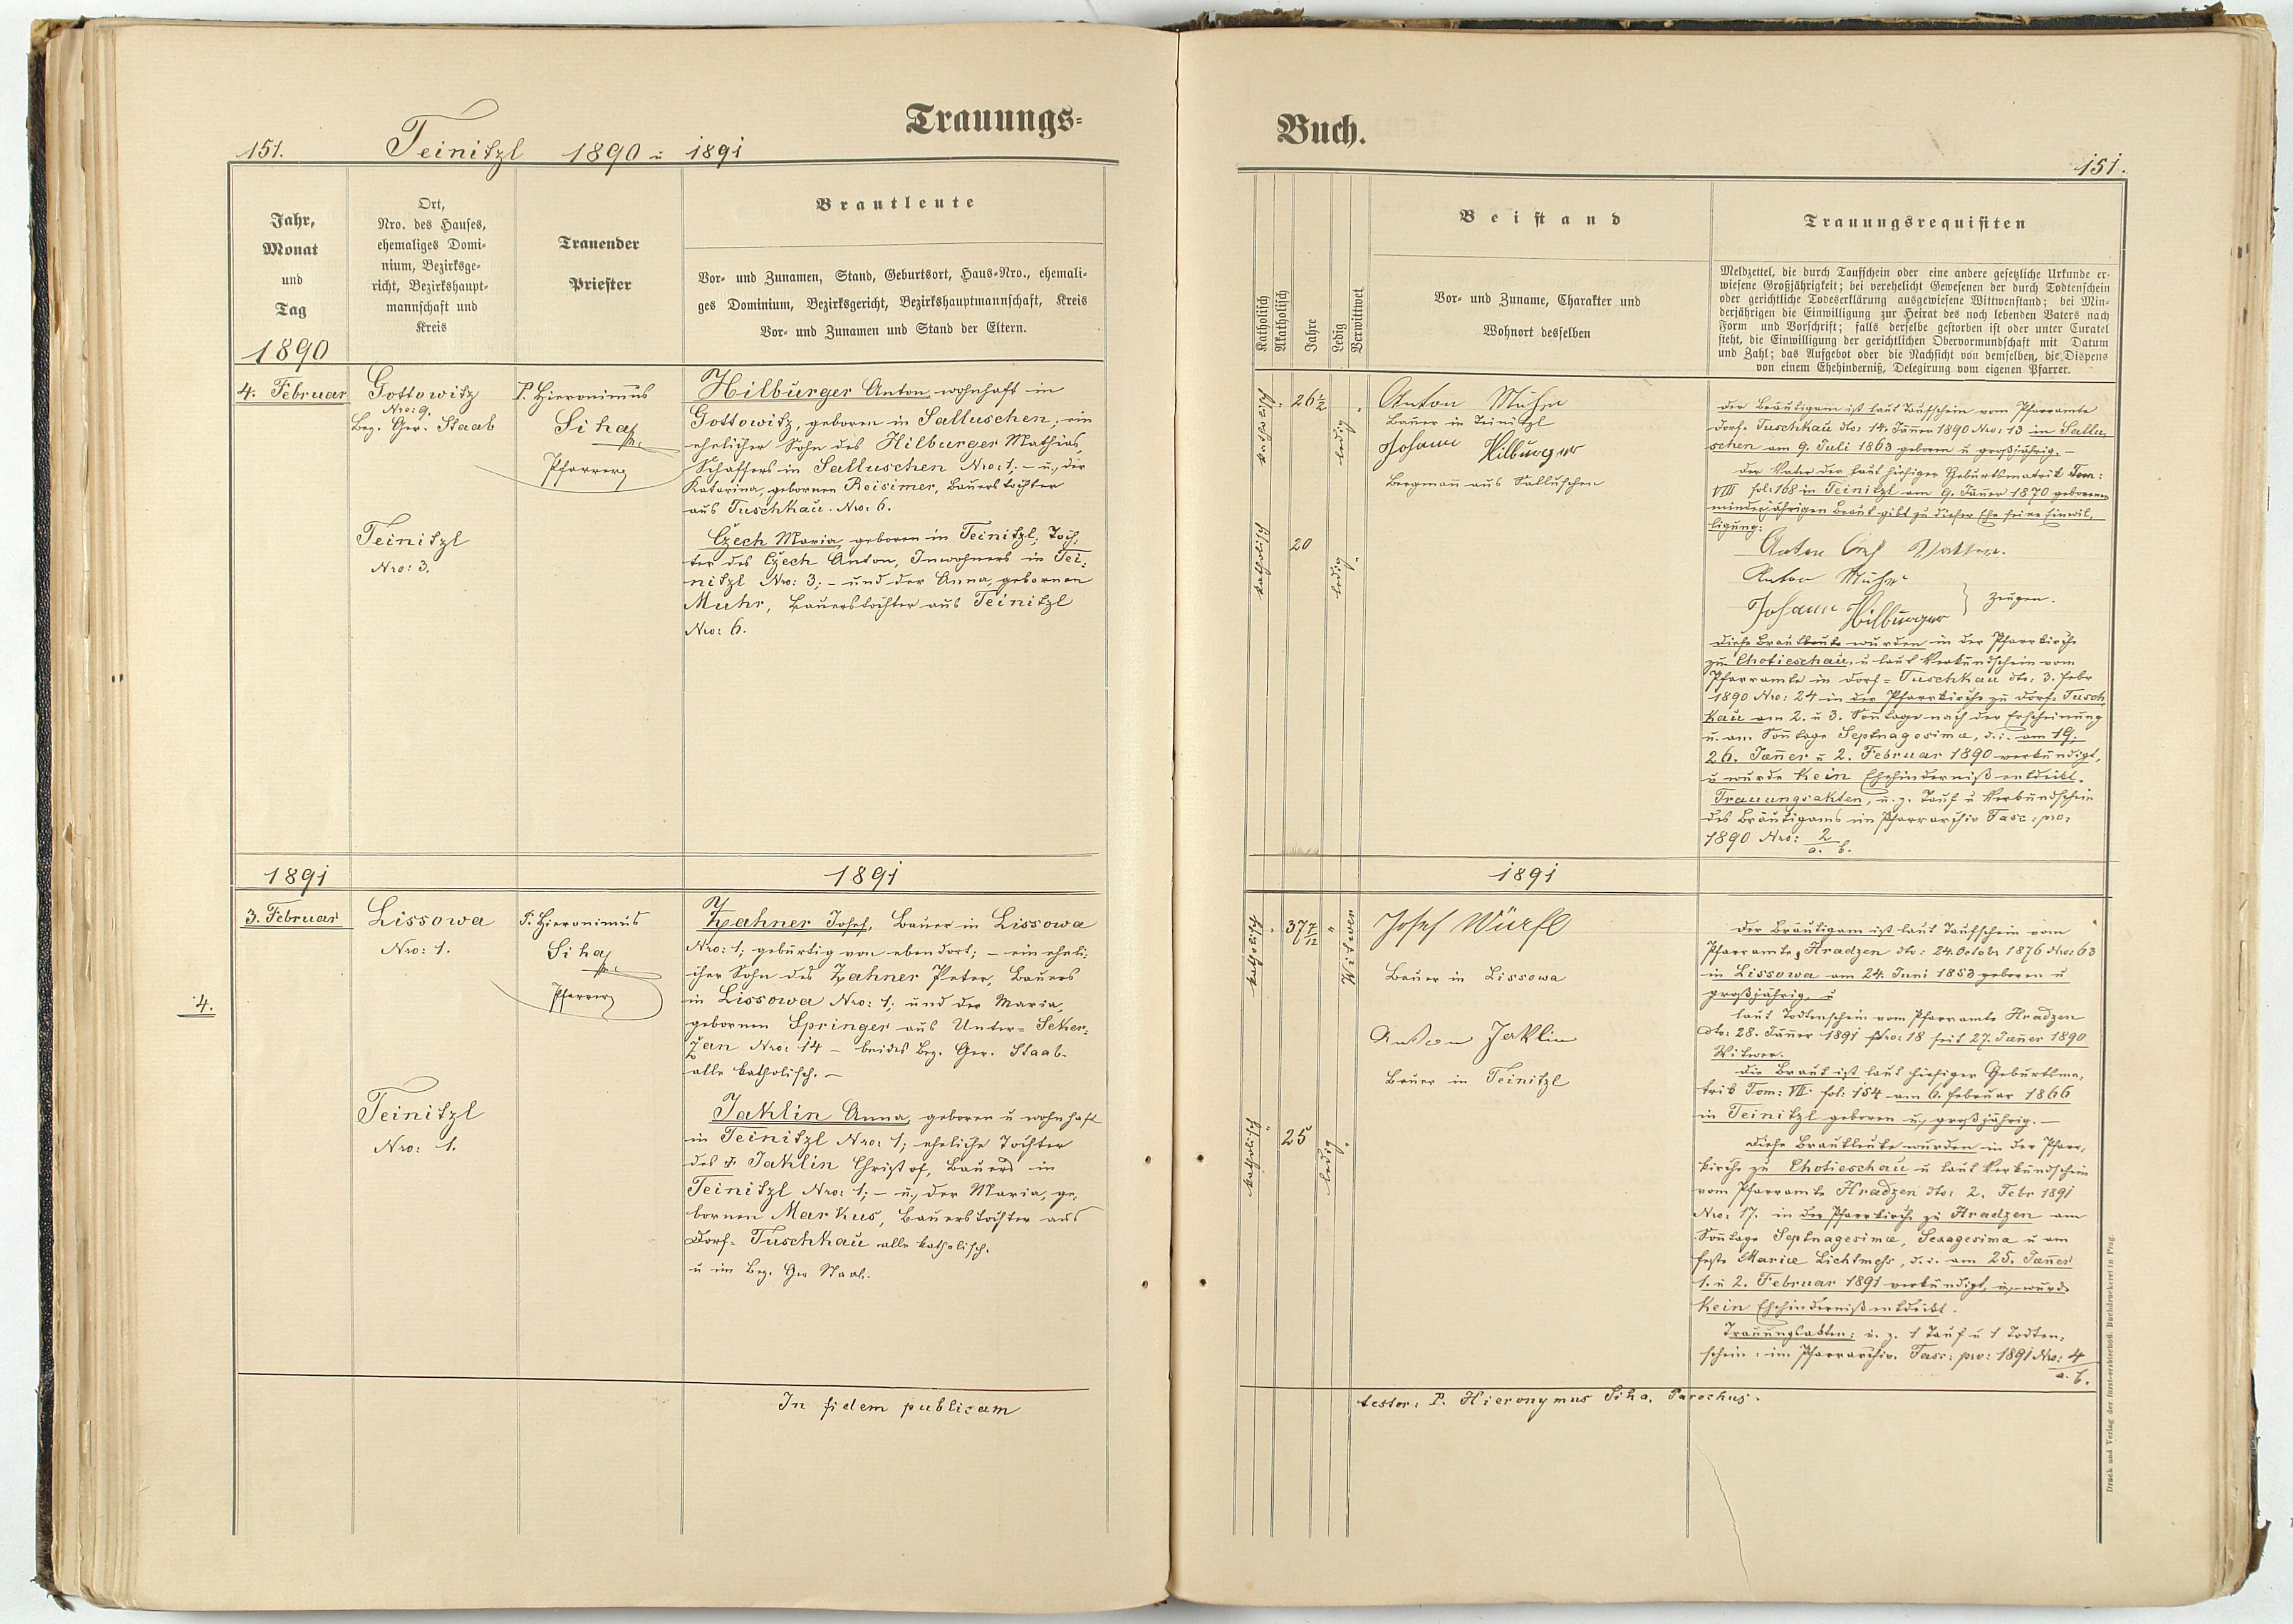 Trauungs=
151. Teinitzl 1890 u 1891
Jahr,
Monat
und
Tag
Ort,
Nro. des Hauses,
ehemaliges Domi-
nium, Bezirksge-
richt, Bezirkshaupt-
mannschaft und
Kreis
Trauender
Priester
Brautleute
Vor- und Zunamen, Stand, Geburtsort, Haus-Nro., ehemali-
ges Dominium, Bezirksgericht, Bezirkshauptmannschaft, Kreis
Vor- und Zunamen und Stand der Eltern.
1890
4. Februar
Gottowitz
Nro: 9.
Bez. Ger. Staab
P. Hieronimus
Siha
Pfarrer
Hilburger Anton wohnhaft in
Gottowitz, geboren in Salluschen, ein
ehelicher Sohn des Hilburger Mathias,
Schaffers in Salluschen Nro: 1; – u. der
Katarina, gebornen Reisimer, Bauerstochter
aus Tuschkau. Nro: 6.
Teinitzl
Nro: 3.
Czech Maria, geboren in Teinitzl, Toch-
ter des Czech Anton, Inwohners in Tei-
nitzl Nro: 3; – und der Anna, gebornen
Muhr, Bauerstochter aus Teinitzl
Nro: 6.
1891 1891
3. Februar
Lissowa
Nro: 1.
P. Hieronimus
Siha
Pfarrer
Zahner Josef, Bauer in Lissowa
Nro: 1, gebürtig von ebendort; – ein eheli-
cher Sohn des Zahner Peter, Bauers
in Lissowa Nro: 1; und der Maria,
gebornen Springer aus Unter= Seker-
zan Nro: 14 – beides Bez. Ger. Staab
alle katholisch. –
4.
Teinitzl
Nro: 1.
Jaklin Anna, geboren u wohnhaft
in Teinitzl Nro: 1; eheliche Tochter
des † Jaklin Christof, Bauers in
Teinitzl Nro: 1; – u. der Maria, ge-
bornen Markus, Bauerstochter aus
Dorf= Tuschkau alle katholisch.
u im Bez. Ger Staab.
In fidem publicam
Buch.
151.
Katholisch
Akatholisch
Jahre
Ledig
Verwittwet
Beistand
Vor- und Zuname, Charakter und
Wohnort desselben
Trauungsrequisiten
Meldzettel, die durch Taufschein oder eine andere gesetzliche Urkunde er-
wiesene Großjährigkeit; bei verehelicht Gewesenen der durch Todtenschein
oder gerichtliche Todeserklärung ausgewiesene Wittwenstand; bei Min-
derjährigen die Einwilligung zur Heirat des noch lebenden Vaters nach
Form und Vorschrift; falls derselbe gestorben ist oder unter Curatel
steht, die Einwilligung der gerichtlichen Obervormundschaft mit Datum
und Zahl; das Aufgebot oder die Nachsicht von demselben, die Dispens
von einem Ehehinderniß, Delegirung vom eigenen Pfarrer.
katholisch
26 1/2
ledig
Anton Muhr
Bauer in Teinitzl
Johann Hilburger
Bergmann aus Salluschen
katholisch
20
ledig
Der Bräutigam ist laut Taufschein vom Pfarramte
Dorf= Tuschkau dto: 14. Jänner 1890 Nro: 13 in Sallu-
schen am 9. Juli 1863 geboren u großjährig. –
Der Vater der laut hiesiger Geburtsmatrik Tom:
VIII fol: 168 in Teinitzl am 9. Jäner 1870 geborenen
minderjährigen Braut gibt zu dieser Ehe seine Einwil-
ligung:
Anton Vatter.
Anton Muhr
Johann Hilburger } Zeugen.
Diese Brautleute wurden in der Pfarrkirche
zu Chotieschau, u laut Verkündschein vom
Pfarramte in Dorf= Tuschkau dto: 3. Febr
1890 Nro: 24 in der Pfarrkirche zu Dorf= Tusch-
kau am 2. u 3. Sontage nach der Erscheinung
u. am Sontage Septuagesima, d. i. am 19.
26. Jäner u 2. Februar 1890 verkündigt,
u wurde kein Ehehinderniß entdekt.
Trauungsakten, u. z. Tauf u Verkündschein
des Bräutigams im Pfarrarchiv Fasc: pro:
1890 Nro: 2/a. b.
1891
katholisch
37 7/12
Witwer
Josef Würfl
Bauer in Lissowa
Anton Jaklin
Bauer in Teinitzl
katholisch
25
ledig
Der Bräutigam ist laut Taufschein vom
Pfarramte Hradzen dto: 24. Octobr 1876 Nro: 63
in Lissowa am 24. Juni 1853 geboren u
großjährig, u
laut Todtenschein vom Pfarramte Hradzen
dto: 28. Jäner 1891 Nro: 18 seit 27. Jäner 1890
Witwer.
Die Braut ist laut hiesiger Geburtsma-
trik Tom: VII. fol: 154 am 6. Februar 1866
in Teinitzl geboren u. großjährig. –
Diese Brautleute wurden in der Pfarr-
kirche zu Chotieschau u laut Verkündschein
vom Pfarramte Hradzen dto: 2. Febr 1891
Nro: 17. in der Pfarrkirche zu Hradzen am
Sontage Septuagesima, Sexagesima u am
Feste Mariæ Lichtmeß, d. i. am 25. Jäner
1. u 2. Februar 1891 verkündigt, u. wurde
kein Ehehinderniß entdekt.
Trauungsakten: u. z. 1 Tauf u 1 Todten-
schein: im Pfarrarchiv. Fasc: pro: 1891 Nro: 4/a. b.
testor: P. Hieronymus Siha. Parochus.
Druck und Verlag der fürst-erzbischöfl. Buchdruckerei in Prag.